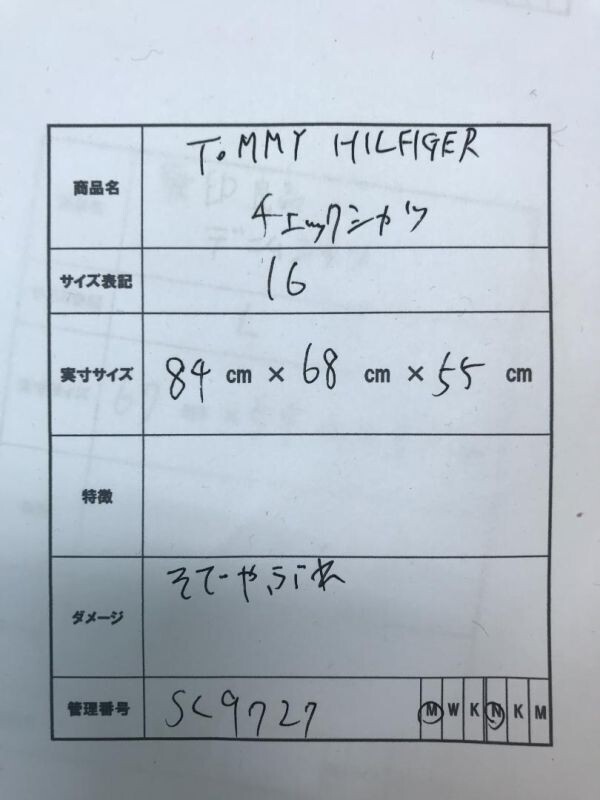 商品名
TOMMY HILFIGER
チェックシャツ
サイズ表記
16
実寸サイズ
84 cm × 68 cm × 55 cm
特徴
ダメージ
そでやぶれ
管理番号
SC9727
M W K N K M